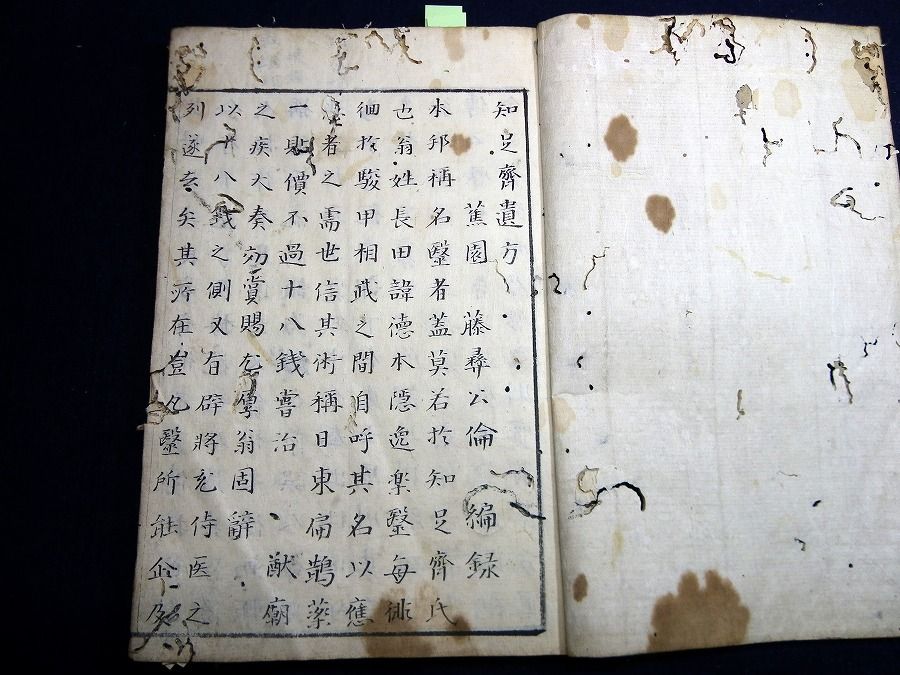 知足齊遺方
蕉園 藤彞公倫 編録
本邦稱名毉者蓋莫若於知足齊氏
也翁姓長田諱德本隱逸楽毉每徘
徊於駿甲相武之間自呼其名以應
者之需世信其術稱曰東扁鵲薬
一貼價不過十八錢嘗治 猷廟
之疾大奏効賞賜尤厚翁固辭
以十八錢之側又有辟將充侍医之
列遂去矣其所在豈凡毉所能企及